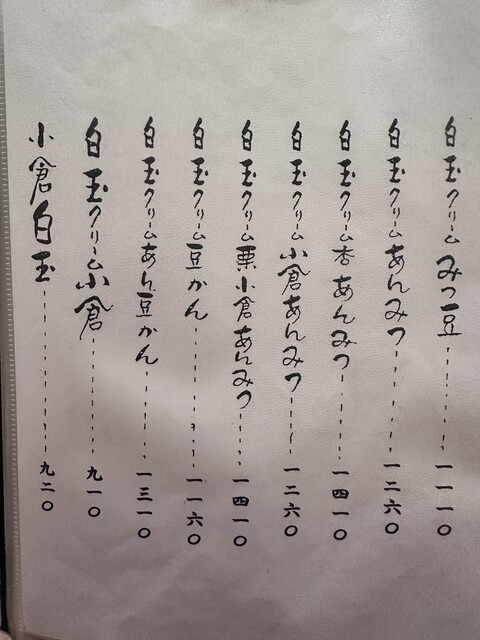 白玉クリームみつ豆 一一一〇
白玉クリームあんみつ 一二六〇
白玉クリーム杏あんみつ 一四一〇
白玉クリーム小倉あんみつ 一二六〇
白玉クリーム栗小倉あんみつ 一四一〇
白玉クリーム豆かん 一一六〇
白玉クリームあん豆かん 一三一〇
白玉クリーム小倉 九一〇
小倉白玉 九二〇